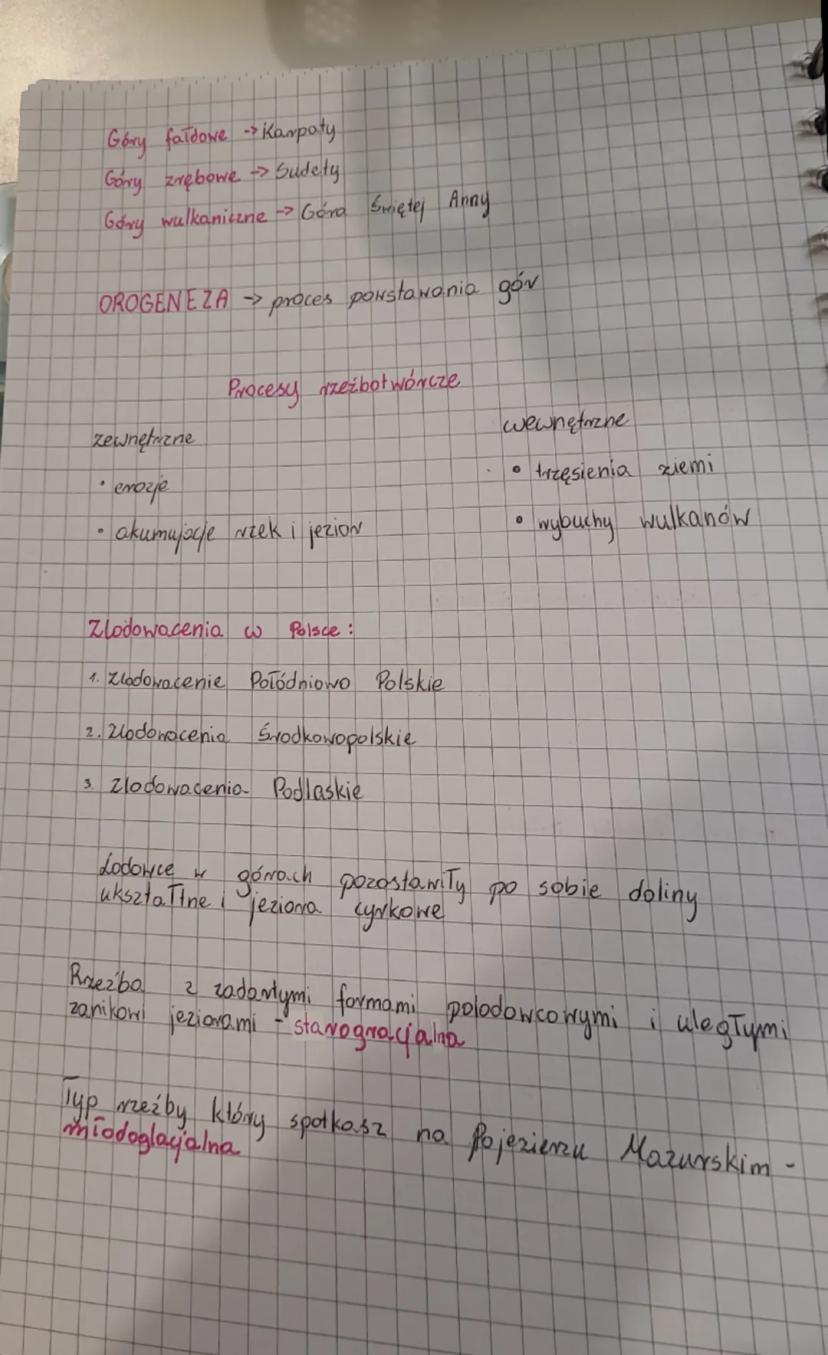 Góry fałdowe -> Karpaty
Góry zrębowe -> Sudety
Góry wulkaniczne -> Góra Świętej Anny
OROGENEZA -> proces powstawania gór
Procesy rzeźbotwórcze
zewnętrzne
• erozje
• akumulacje rzek i jezior
wewnętrzne
• trzęsienia ziemi
• wybuchy wulkanów
Zlodowacenia w Polsce:
1. Zlodowacenie Połódniowo Polskie
2. Zlodowacenia Środkowopolskie
3. Zlodowacenia Podlaskie
Lodowce w górach pozostawiły po sobie doliny
ukształtne i jeziora cyrkowe
Rzeźba z zadartymi formami polodowcowymi i uległymi
zanikowi jeziorami - staroglacjalna
Typ rzeźby który spotkasz na Pojezierzu Mazurskim -
młodoglacjalna